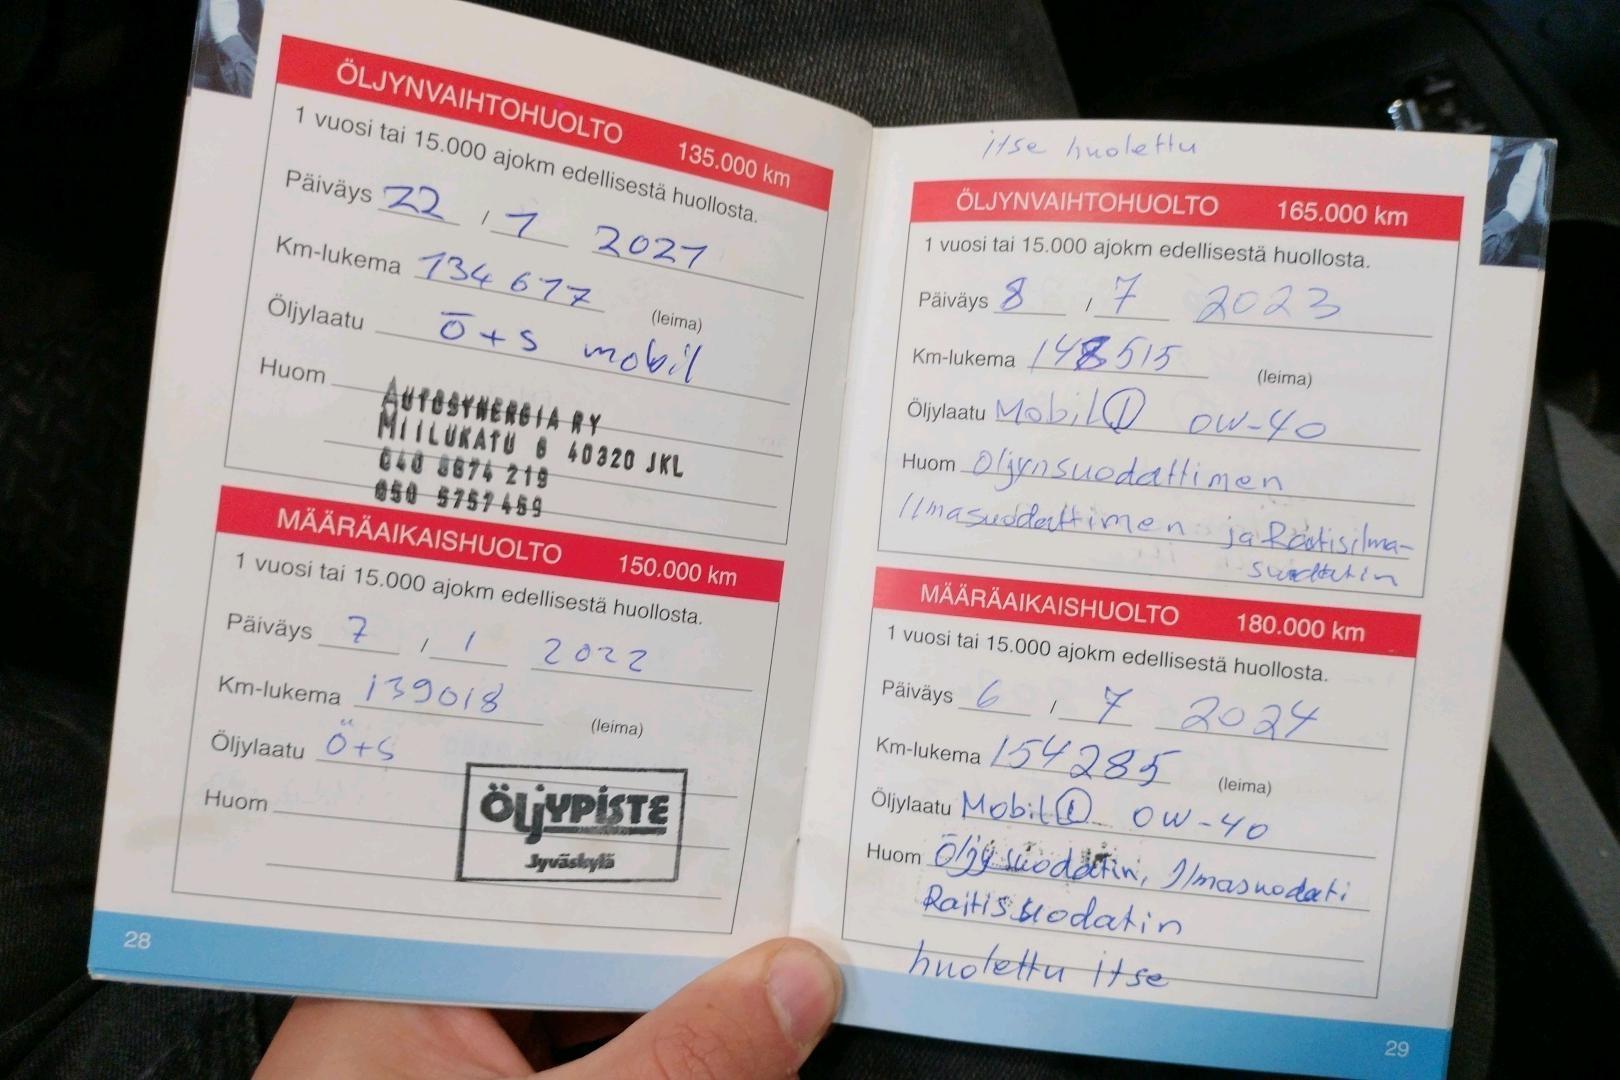 ÖLJYNVAIHTOHUOLTO 135.000 km
1 vuosi tai 15.000 ajokm edellisestä huollosta.
Päiväys 22 / 1 2021
Km-lukema 134617 (leima)
Öljylaatu ö+s mobil
Huom
AUTOSYNERGIA RY
MIILUKATU 6 40320 JKL
040 8674 219
050 5757459
MÄÄRÄAIKAISHUOLTO 150.000 km
1 vuosi tai 15.000 ajokm edellisestä huollosta.
Päiväys 7 / 1 2022
Km-lukema 139018 (leima)
Öljylaatu Ö+S
Huom
ÖLJYPISTE
Jyväskylä
28
itse huolettu
ÖLJYNVAIHTOHUOLTO 165.000 km
1 vuosi tai 15.000 ajokm edellisestä huollosta.
Päiväys 8 / 7 2023
Km-lukema 148515 (leima)
Öljylaatu Mobil 1 0W-40
Huom Öljynsuodattimen
Ilmasuodattimen ja Raitisilma-
suodatin
MÄÄRÄAIKAISHUOLTO 180.000 km
1 vuosi tai 15.000 ajokm edellisestä huollosta.
Päiväys 6 / 7 2024
Km-lukema 154285 (leima)
Öljylaatu Mobil 1 0W-40
Huom Öljysuodatin, Ilmasuodati
Raitissuodatin
huolettu itse
29